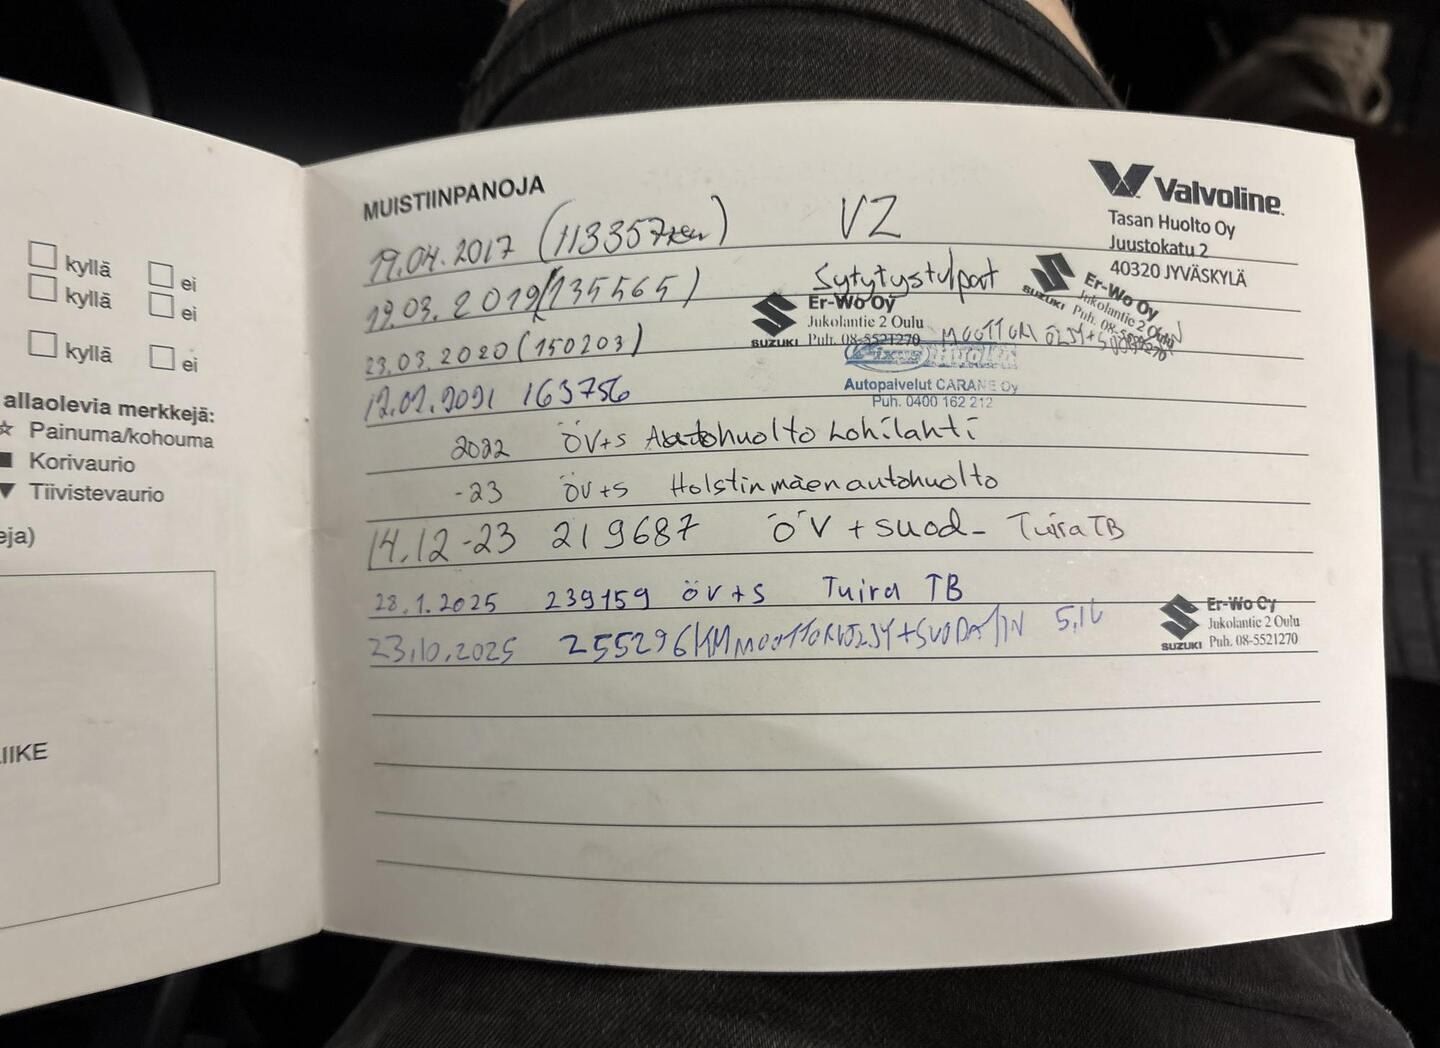 kyllä ei
kyllä ei
kyllä ei
allaolevia merkkejä:
☆ Painuma/kohouma
■ Korivaurio
▼ Tiivistevaurio
eja)
LIIKE
MUISTIINPANOJA
Valvoline
Tasan Huolto Oy
Juustokatu 2
40320 JYVÄSKYLÄ
19.04.2017 (113357 VZ
19.03.2019 (135565) Sytytystulpat
SUZUKI Er-Wo Oy
Jukolantie 2 Oulu
Puh. 08-5521270
SUZUKI Er-Wo Oy
Jukolantie 2 Oulu
Puh. 08-5521270
23.03.2020 (150203) MOOTTORI ÖLJY+
HUOLTO
Autopalvelut CARANE Oy
Puh. 0400 162 212
12.02.2021 163756
2022 ÖV+S Autohuolto Lohilahti
-23 ÖV+S Holstinmäen autohuolto
14.12-23 219687 ÖV + suod- Tuira TB
28.1.2025 239159 ÖV+S Tuira TB
23.10.2025 255296KM MOOTTORIÖLJY+SUODATIN 5,1L
SUZUKI Er-Wo Oy
Jukolantie 2 Oulu
Puh. 08-5521270